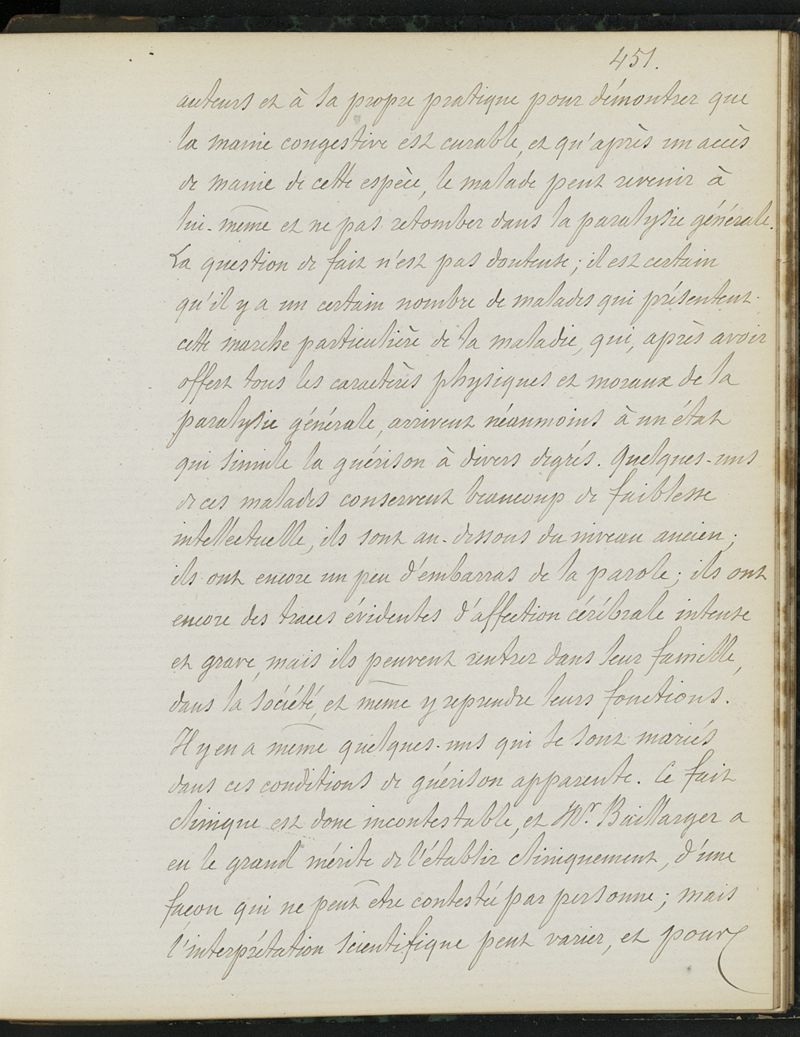 451.
auteurs et à sa propre pratique pour démontrer que
la manie congestive est curable, et qu'après un accès
de manie de cette espèce, le malade peut revenir à
lui-même et ne pas retomber dans la paralysie générale.
La question de fait n'est pas douteuse; il est certain
qu'il y a un certain nombre de malades qui présentent
cette marche particulière de la maladie, qui, après avoir
offert tous les caractères physiques et moraux de la
paralysie générale, arrivent néanmoins à un état
qui simule la guérison à divers degrés. Quelques-uns
de ces malades conservent beaucoup de faiblesse
intellectuelle, ils sont au-dessous du niveau ancien;
ils ont encore un peu d'embarras de la parole; ils ont
encore des traces évidentes d'affection cérébrale intense
et grave, mais ils peuvent rentrer dans leur famille,
dans la société, et même y reprendre leurs fonctions.
Il y en a même quelques-uns qui se sont mariés
dans ces conditions de guérison apparente. Ce fait
clinique est donc incontestable, et Mr. Baillarger a
eu le grand mérite de l'établir cliniquement, d'une
façon qui ne peut être contestée par personne; mais
l'interprétation scientifique peut varier, et pour